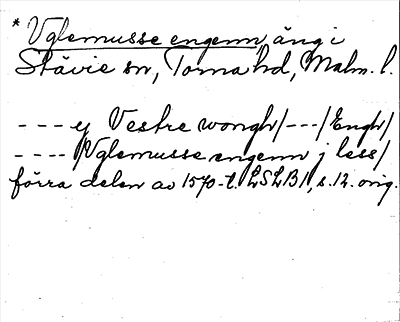 * Vglemusse engenn, äng i
Stävie sn, Torna hd, Malm. l.
--- y Vestre wongh/---/Engh/
---- /Vglemusse engenn j less/
förra delen av 1570-t. LSLB1, s. 12. orig.